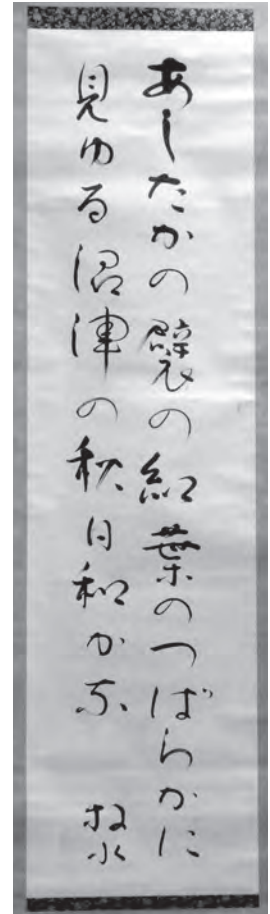 あしたかの襞の紅葉のつばらかに
見ゆる沼津の秋日和かな 牧水